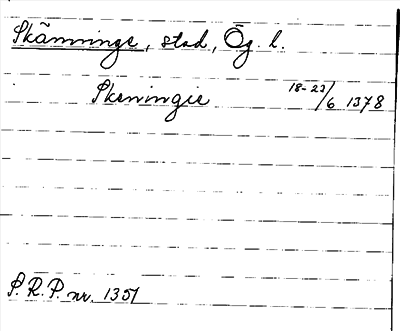 Skänninge, stad, Ög. l.
Skeningie 18-23/6 1378
S.R.P. nr. 1351